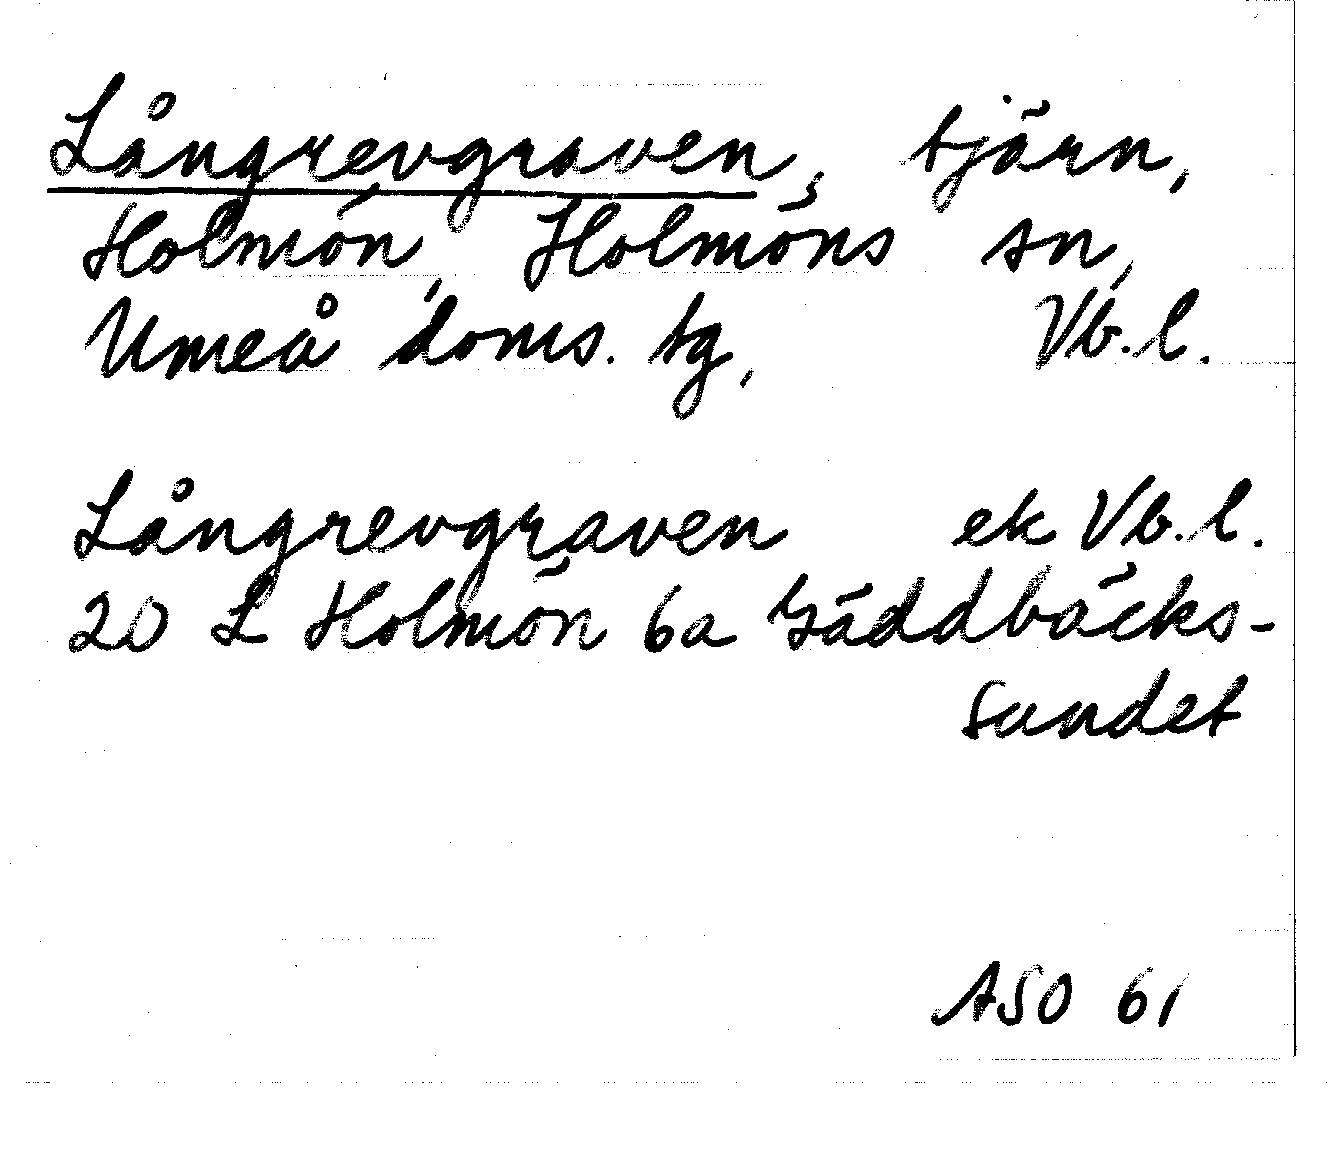 Långrevgraven, tjärn,
Holmön, Holmöns sn,
Umeå doms. tg, Vb.l.
Långrevgraven ek Vb.l.
20 L Holmön 6a Gäddbäcks-
sundet
ASO 61